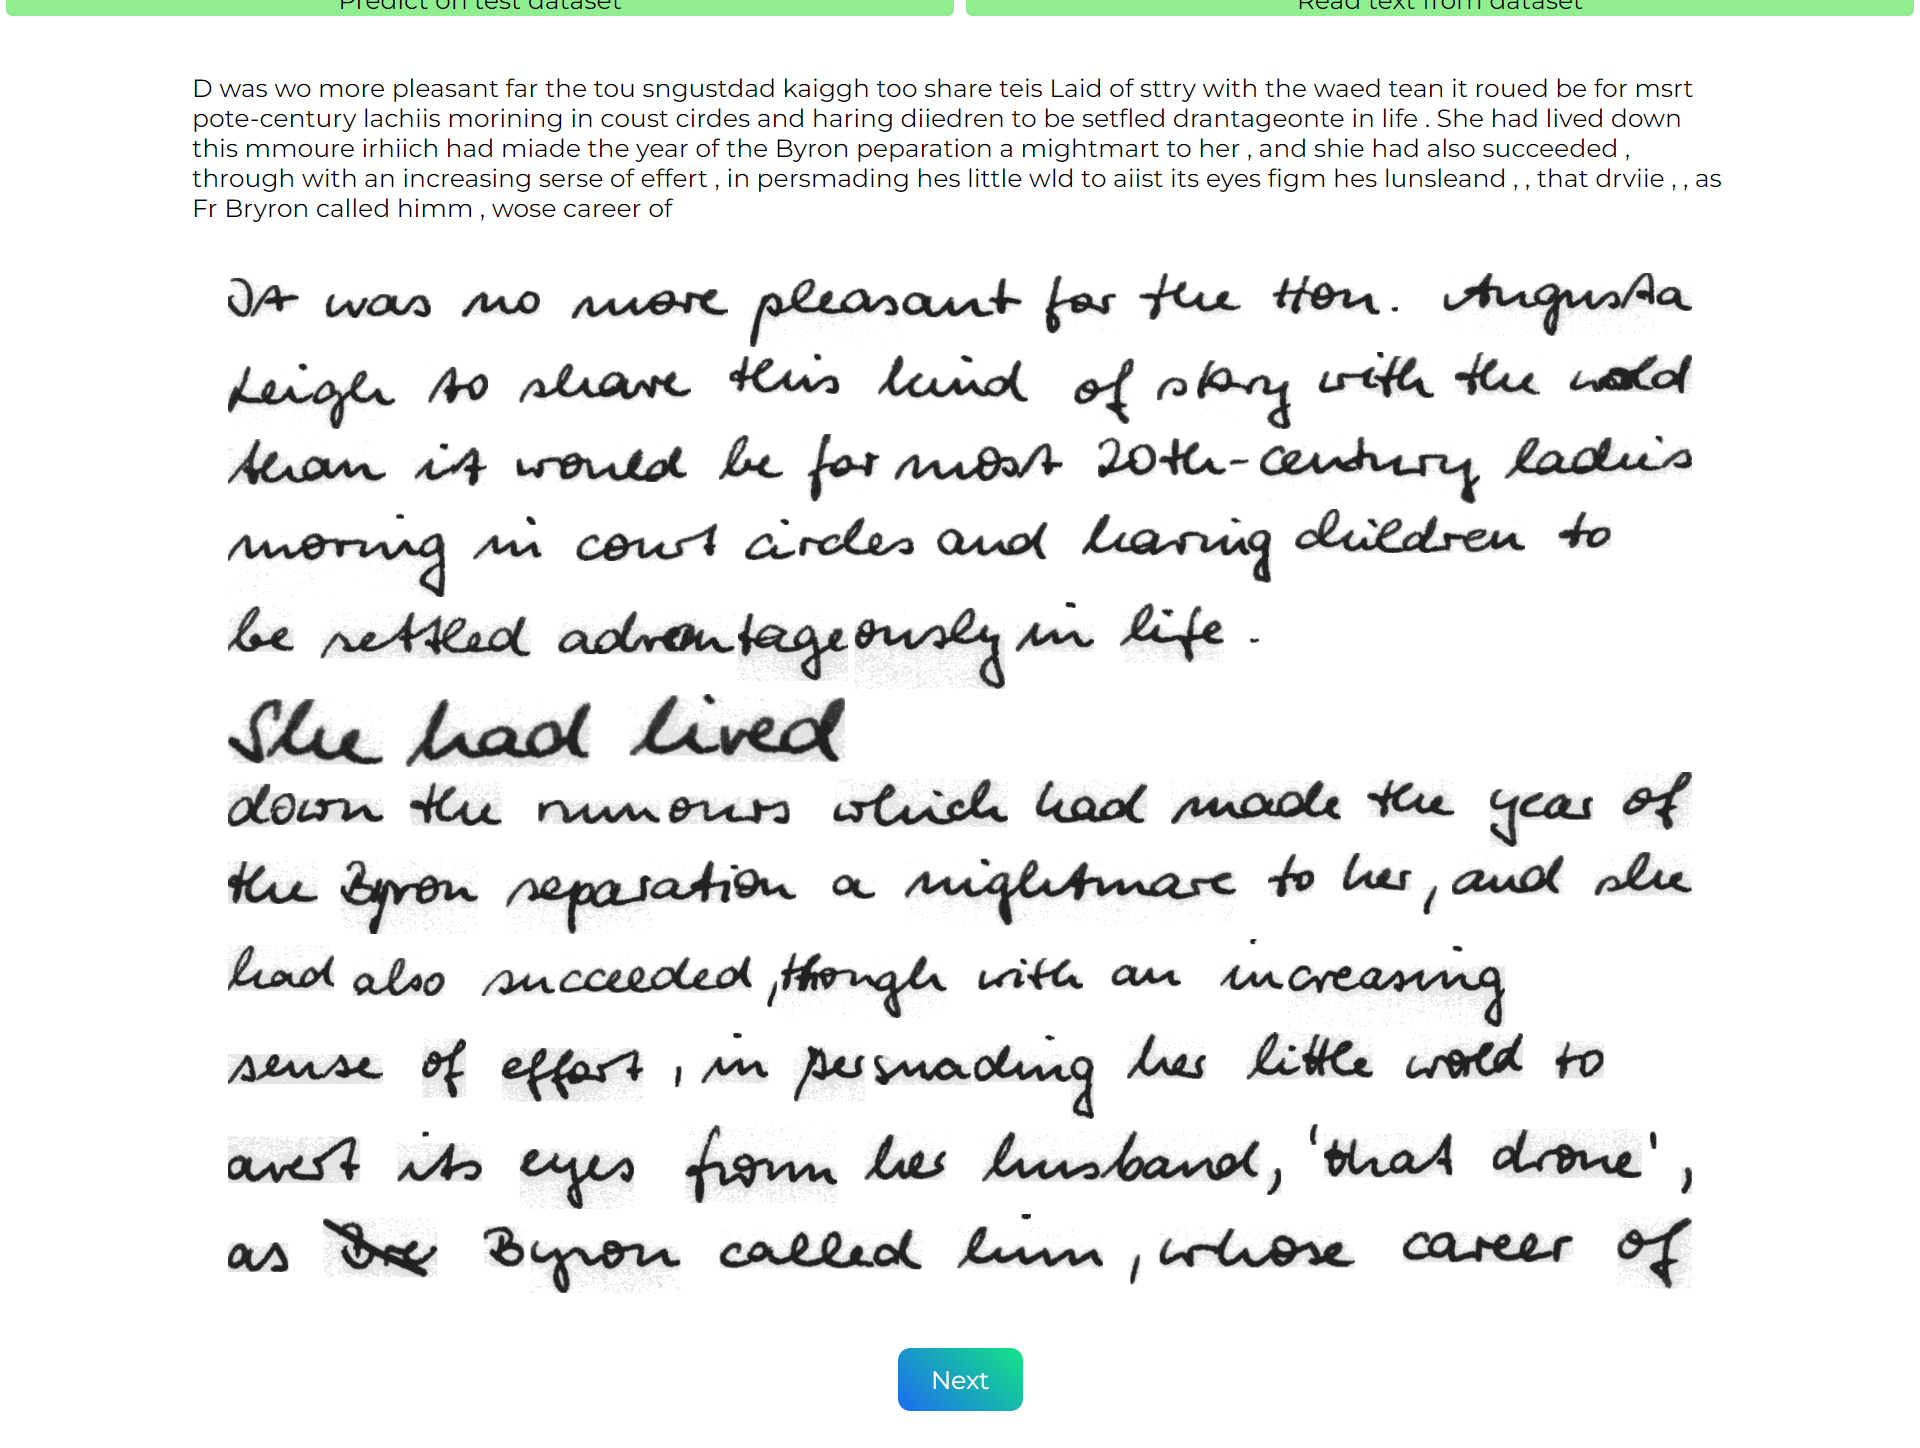 Predict on test dataset
Read text from dataset
D was wo more pleasant far the tou sngustdad kaiggh too share teis Laid of sttry with the waed tean it roued be for msrt
pote-century lachiis morining in coust cirdes and haring diiedren to be setfled drantageonte in life . She had lived down
this mmoure irhiich had miade the year of the Byron peparation a mightmart to her , and shie had also succeeded ,
through with an increasing serse of effert , in persmading hes little wld to aiist its eyes figm hes lunsleand , , that drviie , , as
Fr Bryron called himm , wose career of
It was no more pleasant for the Hon. Augusta
Leigh to share this kind of story with the world
than it would be for most 20th-century ladies
moving in court circles and having children to
be settled advantageously in life .
She had lived
down the rumours which had made the year of
the Byron separation a nightmare to her, and she
had also succeeded, though with an increasing
sense of effort, in persuading her little world to
avert its eyes from her husband, 'that drone',
as Byron called him, whose career of
Next